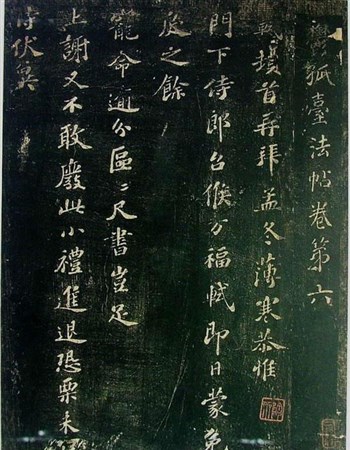 鬱孤臺法帖卷第六
軾頓首再拜孟冬薄寒恭惟
門下侍郎台候万福軾即日蒙免
戾之餘
寵命逾分區〻尺書豈足
上謝又不敢廢此小禮進退恐栗未
伏奠